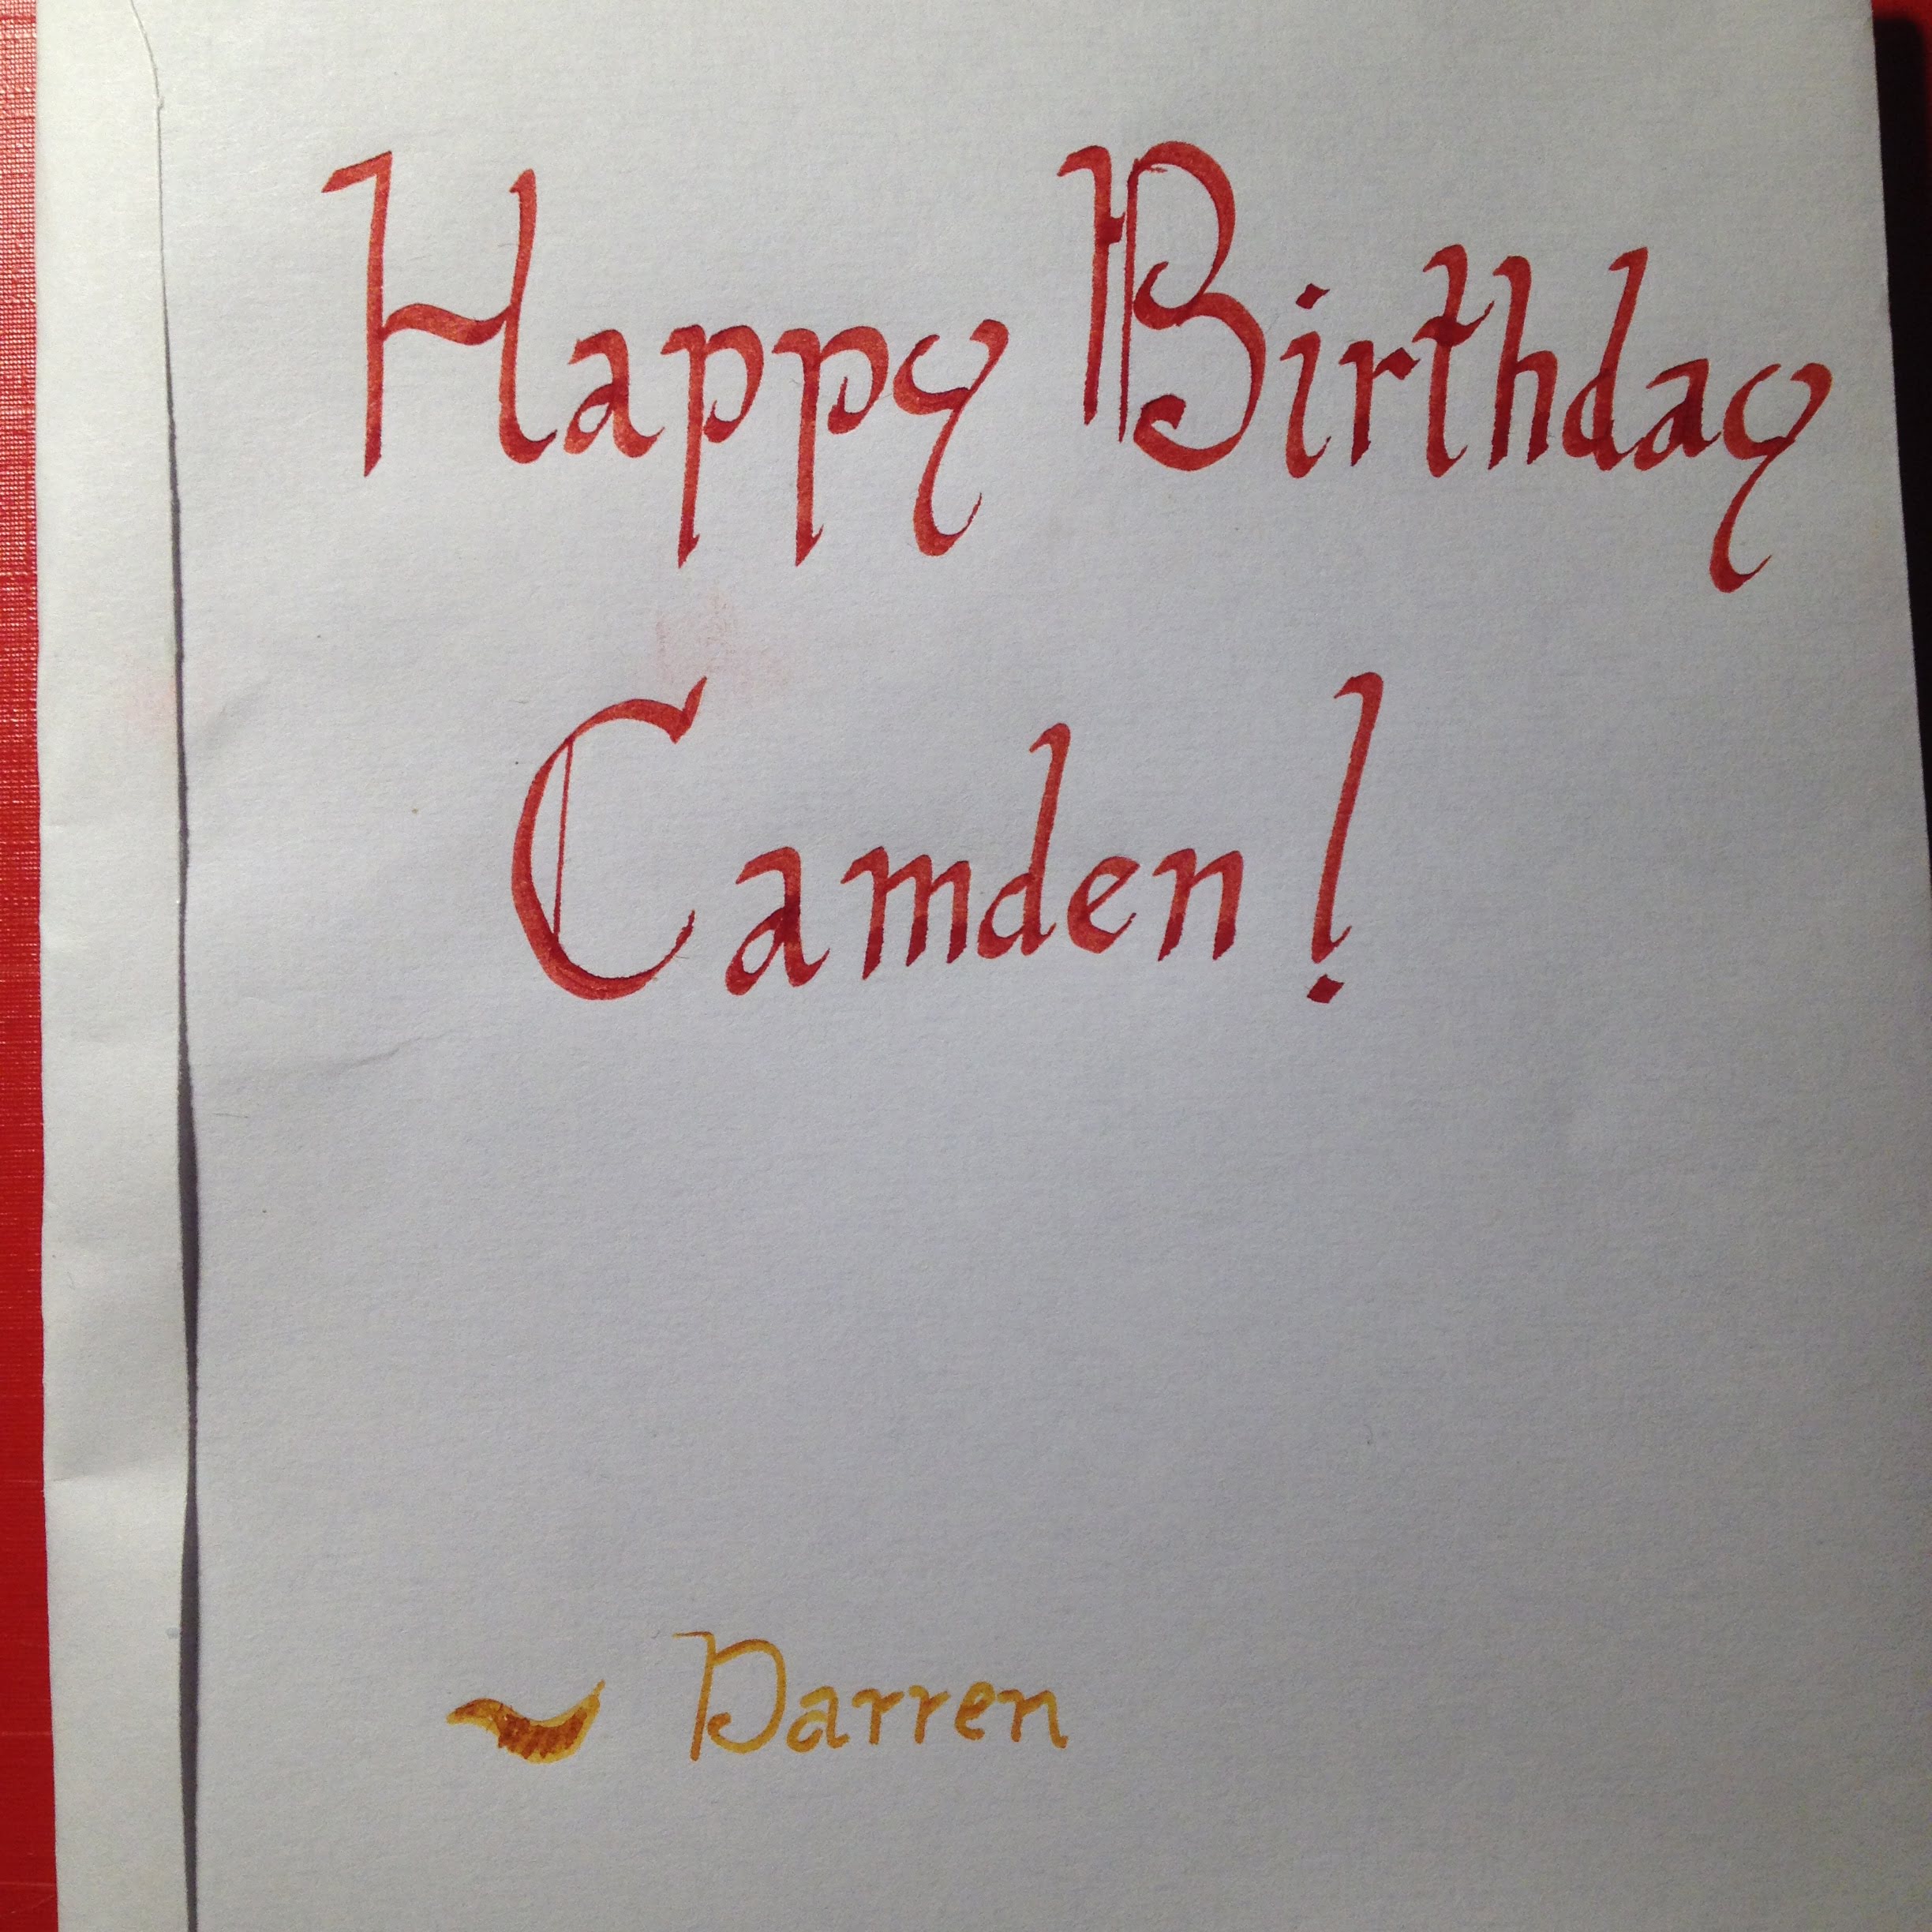 Happy Birthday
Camden!
~ Darren